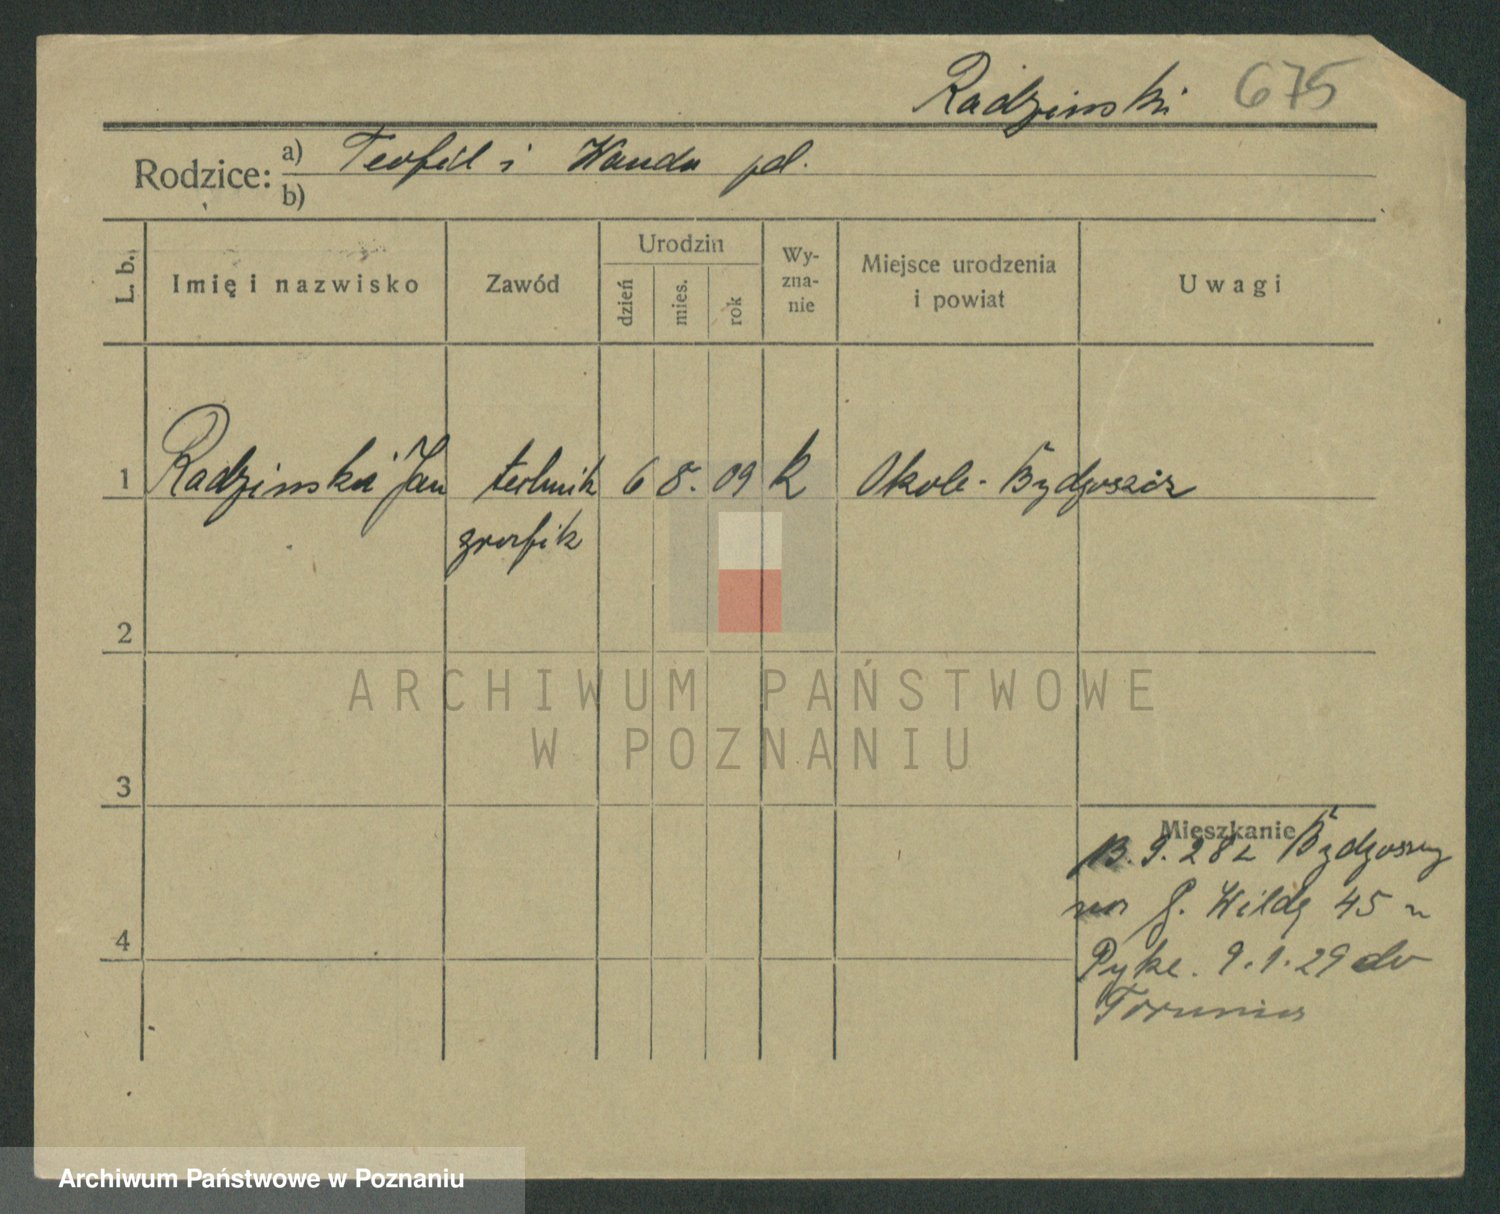 Radzinski 675
Rodzice: a) Teofil i Wanda pd.
b)
L. b.
Imię i nazwisko
Zawód
Urodzin
dzień
mies.
rok
Wy-
zna-
nie
Miejsce urodzenia
i powiat
Uwagi
1 Radzinski Jan technik 6 8. 09 k Okole - Bydgoszcz
grafik
2
ARCHIWUM PAŃSTWOWE
W POZNANIU
3
Mieszkanie
9. 28 z Bydgoszczy
na G. Wildę 45 u
Pyke. 9. 1. 29 do
Torunia
4
Archiwum Państwowe w Poznaniu